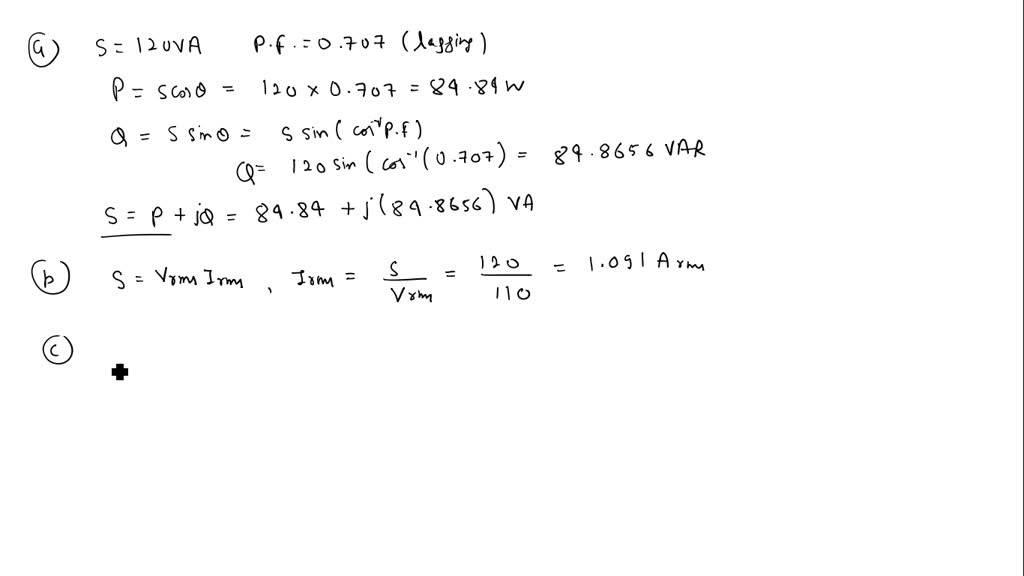 (a) S = 120VA P.f. = 0.707 (lagging)
P = S cosθ = 120 × 0.707 = 84.84 W
Q = S sinθ = S sin(cos⁻¹ P.f)
Q = 120 sin(cos⁻¹(0.707) = 84.8656 VAR
S = P + jQ = 84.84 + j(84.8656) VA
(b) S = Vrms Irms , Irms = S/Vrms = 120/110 = 1.091 A rms
(c)